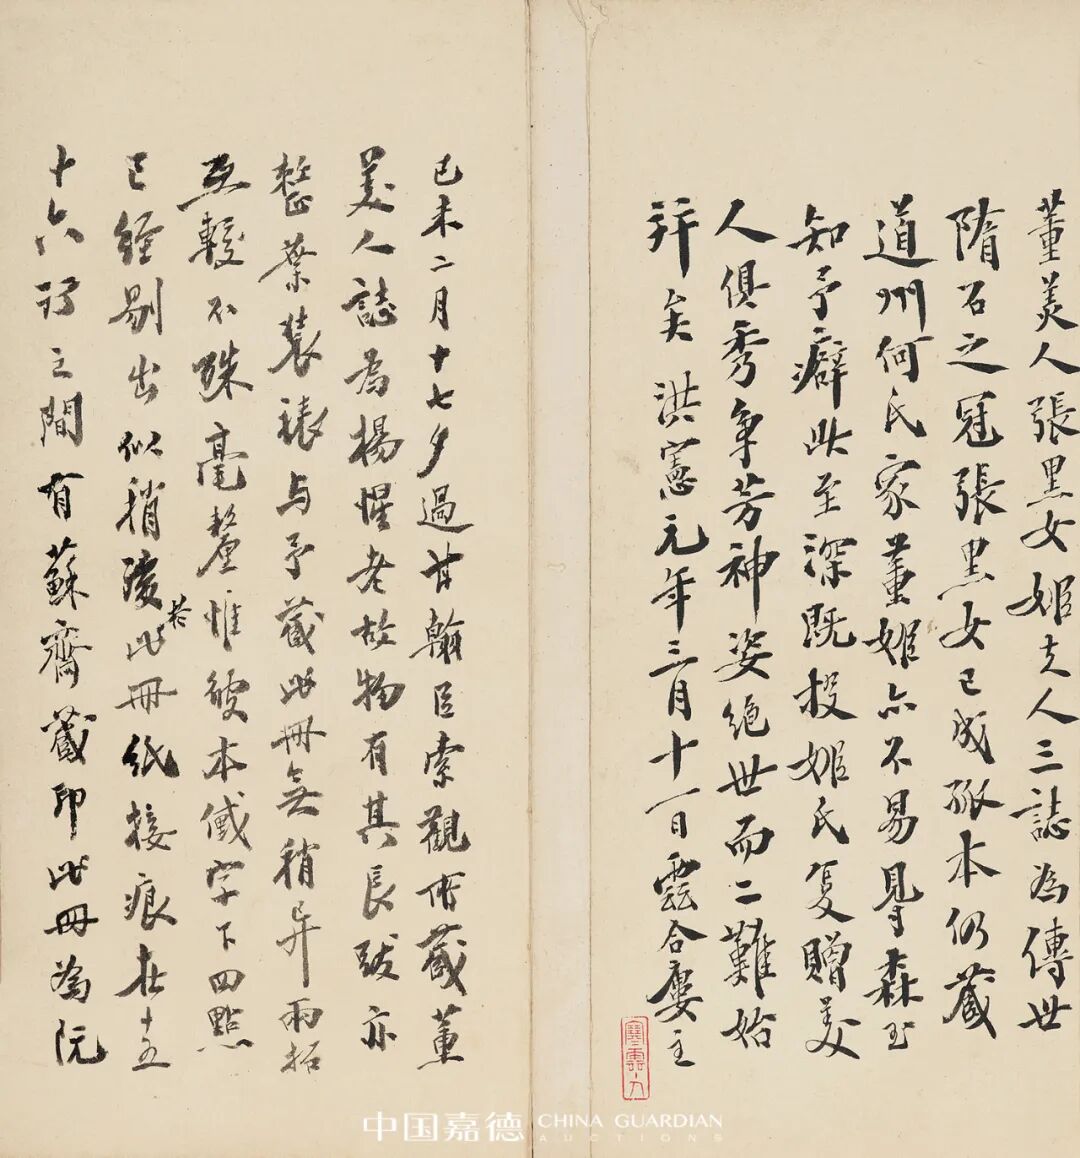 董美人張黑女姬夫人三誌為傳世
隋石之冠張黑女已成孤本仍藏
道州何氏家董姬亦不易得森玉
知予癖此至深既投姬氏复贈美
人俱秀争芳神姿絕世而二難始
并矣洪憲元年三月十一日雲合廔主
寒雲
己未二月十七夕過甘翰臣索觀所藏董
美人誌為楊惺老故物有其長跋亦
整葉裝裱与予藏此冊無稍异兩拓
互較不殊毫釐惟彼本儀字下四點
已經剔出似稍後若此冊紙接痕在十五
十六行之間有蘇齋藏印此冊為阮
中国嘉德 CHINA GUARDIAN
AUCTIONS